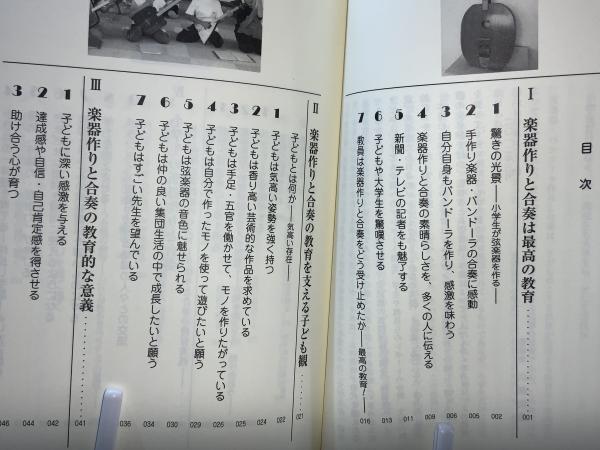 目次
Ⅰ 楽器作りと合奏は最高の教育 001
1 驚きの光景――小学生が弦楽器を作る―― 002
2 手作り楽器・バンドーラの合奏に感動 005
3 自分自身もバンドーラを作り、感激を味わう 006
4 楽器作りと合奏の素晴らしさを、多くの人に伝える 009
5 新聞・テレビの記者をも魅了する 011
6 子どもや大学生を驚嘆させる 013
7 教員は楽器作りと合奏をどう受け止めたか――最高の教育！―― 016
Ⅱ 楽器作りと合奏の教育を支える子ども観 021
子どもとは何か――気高い存在―― 022
1 子どもは気高い姿勢を強く持つ 024
2 子どもは香り高い芸術的な作品を求めている 025
3 子どもは手足・五官を働かせて、モノを作りたがっている 026
4 子どもは自分で作ったモノを使って遊びたいと願う 029
5 子どもは弦楽器の音色に魅せられる 030
6 子どもは仲の良い集団生活の中で成長したいと願う 034
7 子どもはすごい先生を望んでいる 036
Ⅲ 楽器作りと合奏の教育的な意義 041
1 子どもに深い感激を与える 042
2 達成感や自信・自己肯定感を得させる 044
3 助け合う心が育つ 046